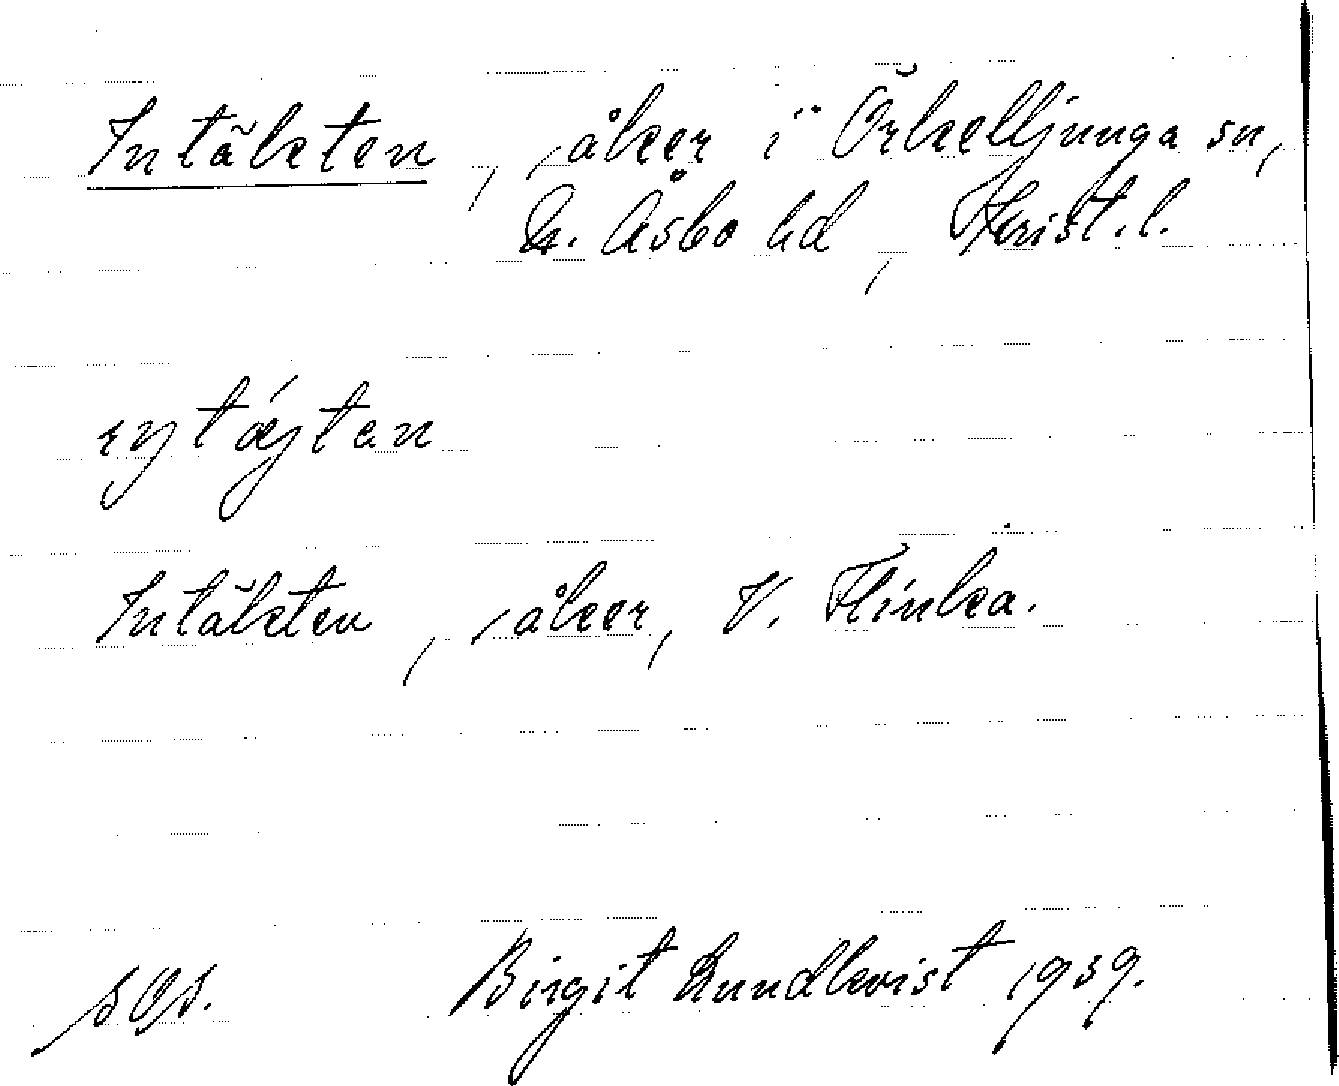 Intäkten, åker i Örkelljunga sn,
N. Åsbo hd, Krist. l.
Intäkten, åker, V. Flinka.
Birgit Lundkvist 1939.